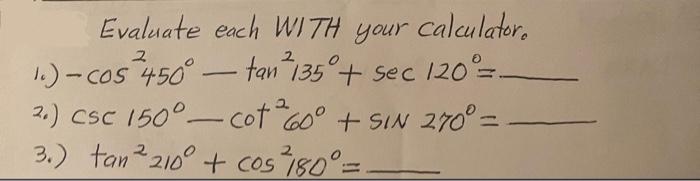 Evaluate each WITH your calculator.
1.) -cos²450° — tan²135° + sec 120° = ____
2.) csc 150° — cot²60° + SIN 270° = ____
3.) tan²210° + cos²180° = ____